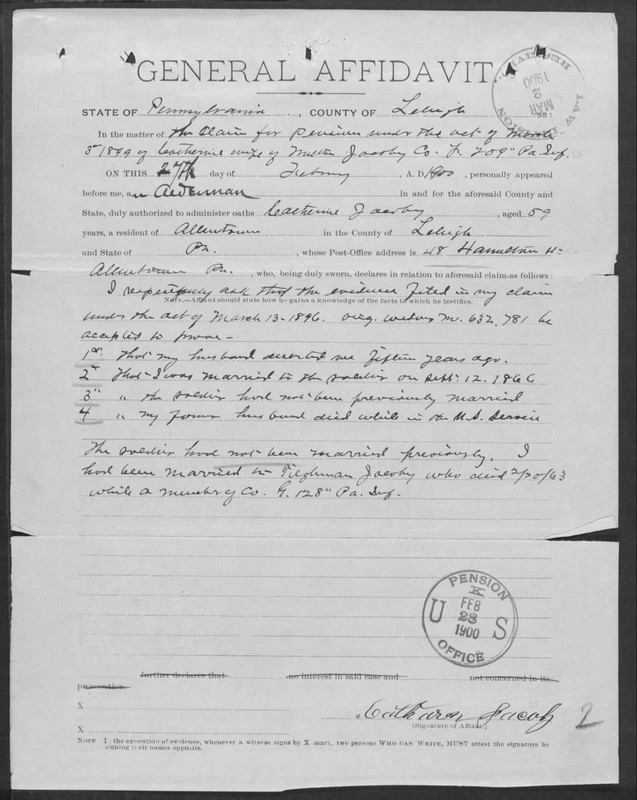 GENERAL AFFIDAVIT
STATE OF Pennsylvania, COUNTY OF Lehigh SS:
In the matter of the Claim for pension under the act of March
3" 1899 of Catherine wife of Milton Jacoby Co. K 209" Pa. Inf.
ON THIS 27th day of February, A. D. 1900, personally appeared
before me, an Alderman in and for the aforesaid County and
State, duly authorized to administer oaths Catherine Jacoby, aged 59
years, a resident of Allentown in the County of Lehigh
and State of Pa., whose Post-Office address is 48 Hamilton St
Allentown Pa., who, being duly sworn, declares in relation to aforesaid claim as follows:
I respectfully ask that the evidence filed in my claim
NOTE.—Affiant should state how he gains a knowledge of the facts to which he testifies.
under the act of March 13-1896. orig. widows no. 632,781 be
accepted to prove-
1st that my husband deserted me fifteen years ago.
2d That I was married to the soldier on Sept. 12. 1866
3" " the soldier had not been previously married
4 " my former husband died while in the U.S. Service
The soldier had not been married previously. I
had been married to Tilghman Jacoby who died 2/20/63
while a member of Co. G. 128" Pa. Inf.
PENSION
K
U FEB S
28
1900
OFFICE
further declares that no interest in said case and not concerned in its
prosecution.
X
Catharen Jacoby 2
(Signature of Affiant.)
X
NOTE the execution of evidence, whenever a witness signs by X mark, two persons WHO CAN WRITE, MUST attest the signature by
signing their names opposite.
LAW DIVISION
MAR
2
1900